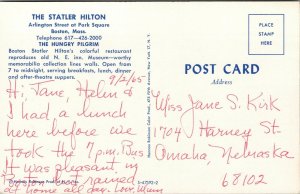 THE STATLER HILTON
Arlington Street at Park Square
Boston, Mass.
Telephone 617-426-2000
THE HUNGRY PILGRIM
Boston Statler Hilton's colorful restaurant
reproduces old N. E. inn. Museum-worthy
memorabilia collection lines walls. Open from
7 to midnight, serving breakfast, lunch, dinner
and after-theatre suppers.
PLACE
STAMP
HERE
POST CARD
Address
9/2/65
Hi Jane Helen &
I had a lunch
here before we
took the 7 p.m. Bus
It was pleasant
rained
at home all day. Love, Mum
Miss Jane S. Kirk
1704 Harney St.
Omaha, Nebraska
68102